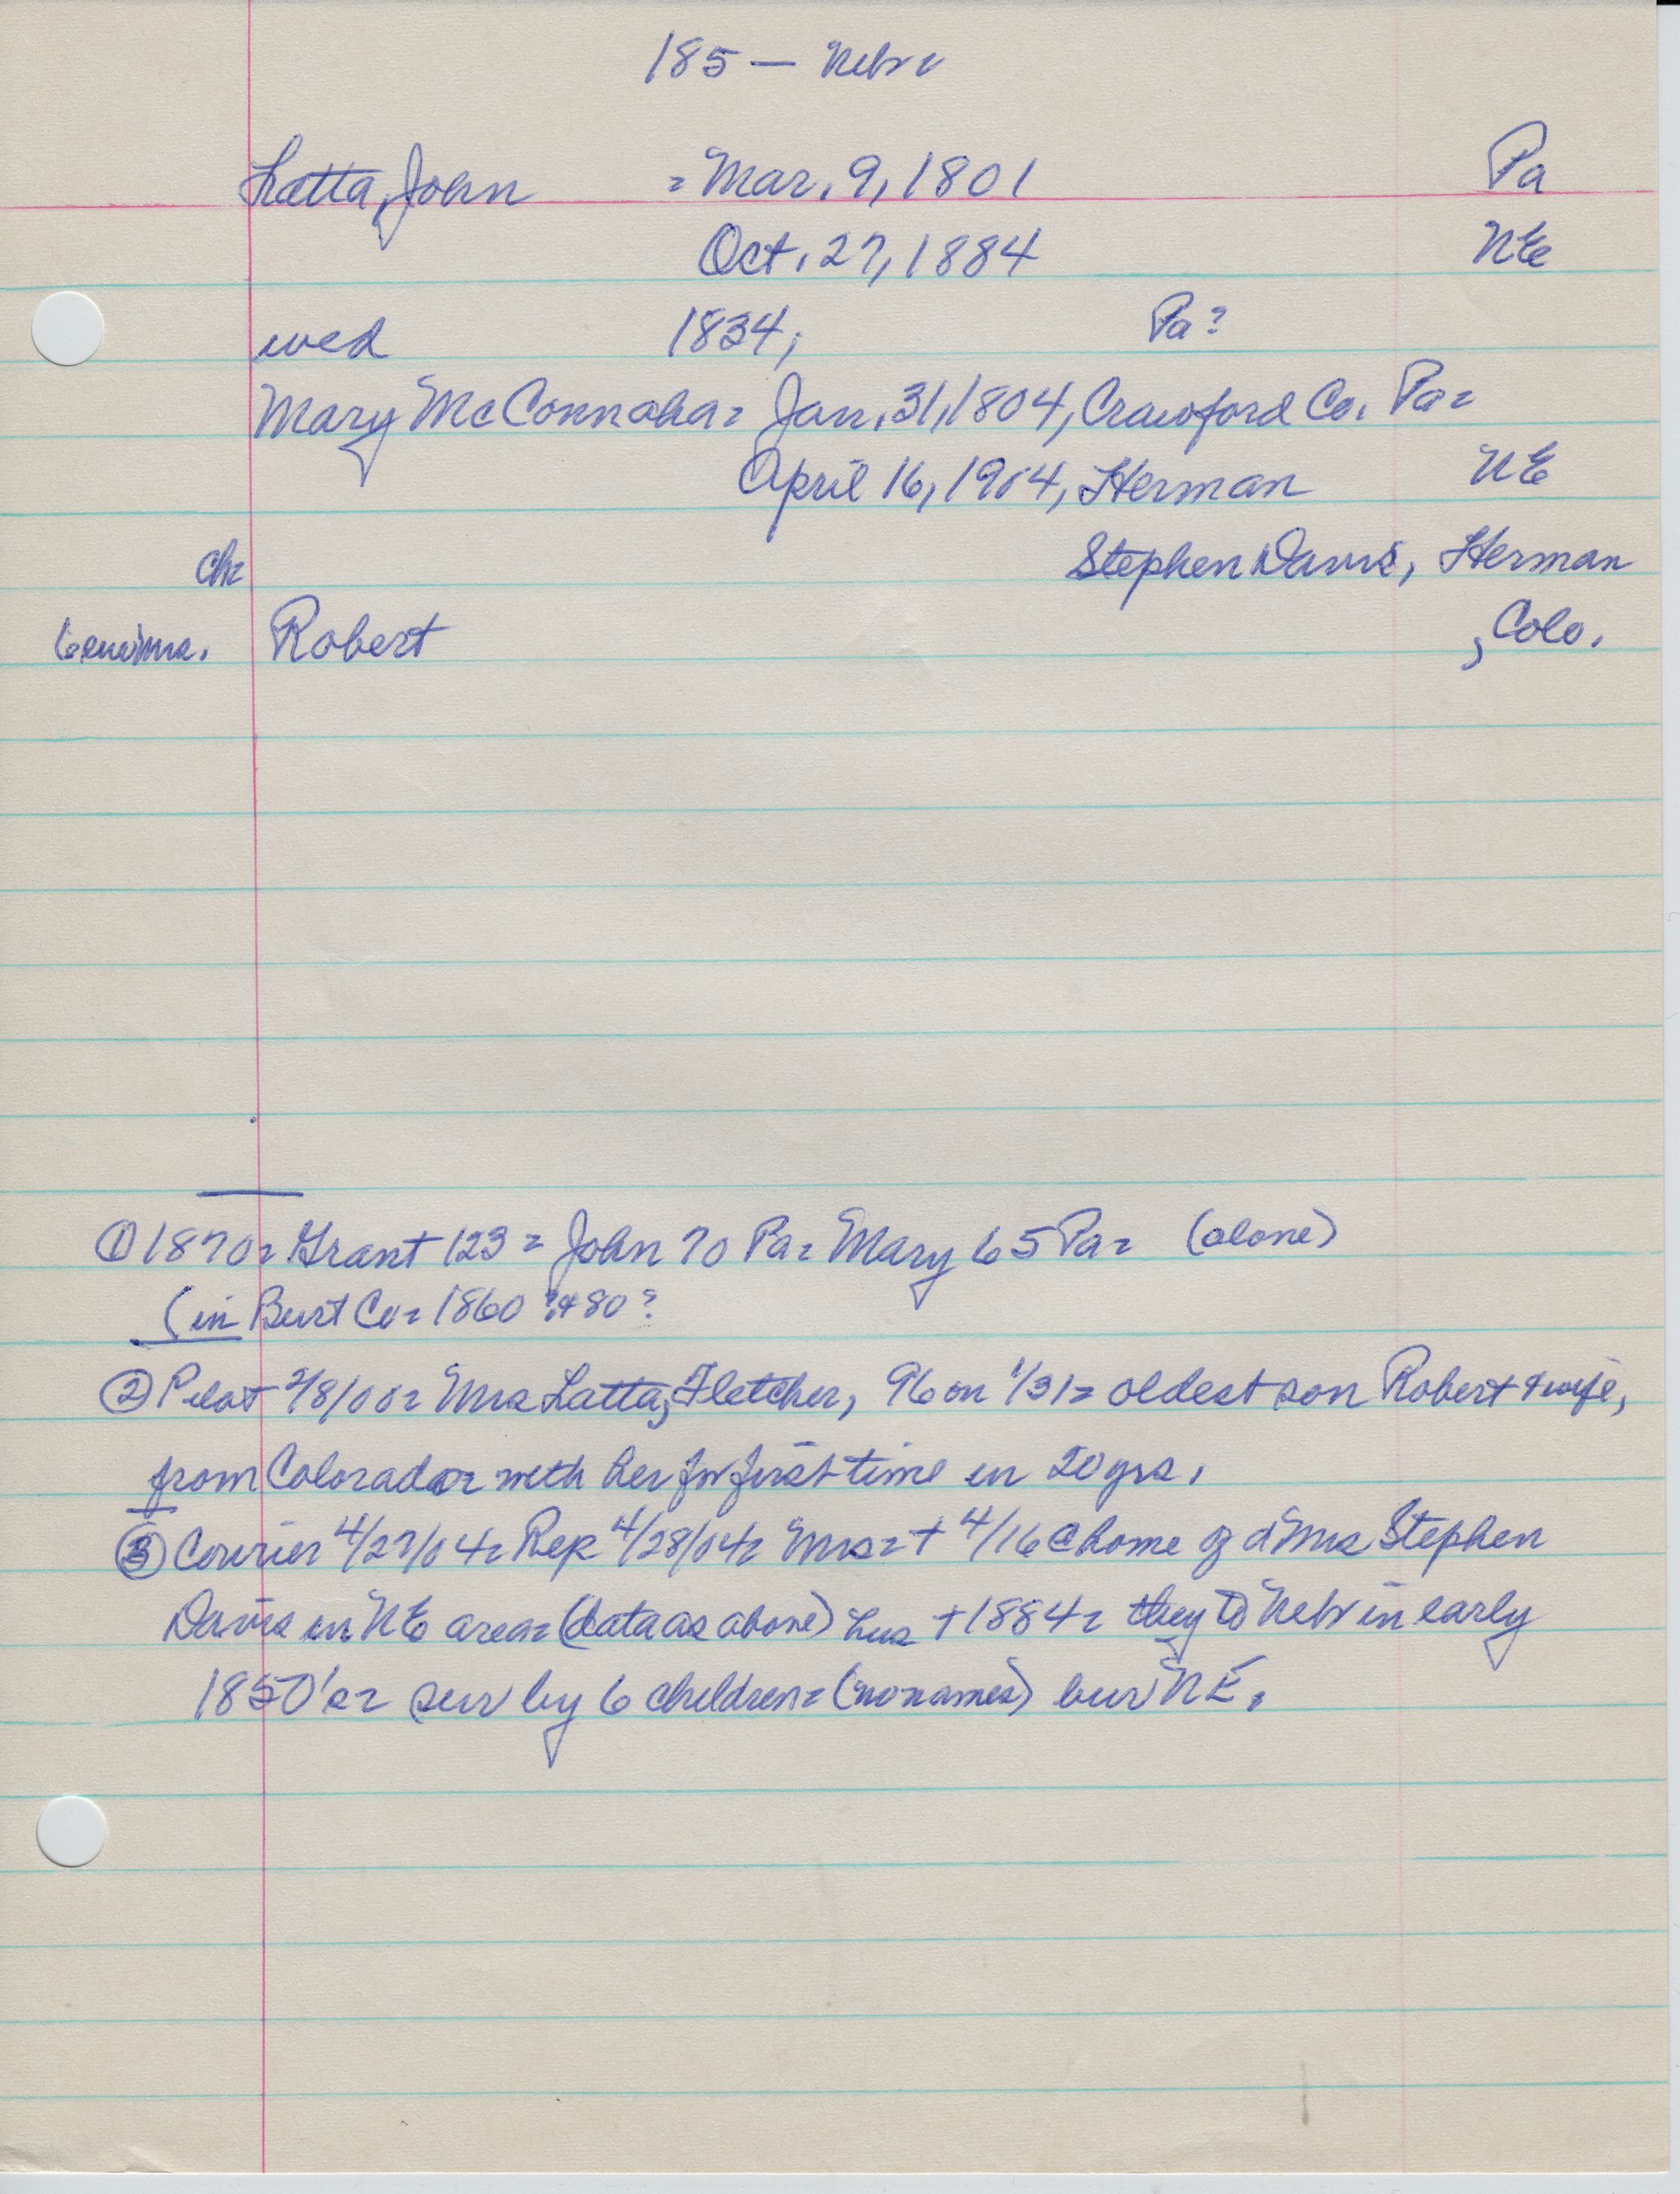 185 — Nebr
Latta, John = Mar. 9, 1801 Pa
Oct. 27, 1884 NE
wed 1834; Pa?
Mary McConnaha= Jan. 31, 1804, Crawford Co. Pa=
April 16, 1904, Herman NE
ch= Stephen Davis, Herman
Robert , Colo.
① 1870= Grant 123= John 70 Pa= Mary 65 Pa= (alone)
(in Burt Co= 1860 ? + 80?
② Pilot 2/8/00= Mrs Latta, Fletcher, 96 on 1/31= oldest son Robert + wife,
from Colorado= with her for first time in 20 yrs.
③ Courier 4/27/04= Rep 4/28/04= Mrs= + 4/16 @ home of d Mrs Stephen
Davis in NE area= (data as above) hus + 1884= they to Nebr in early
1850's= sur by 6 children= (no names) bur NE.